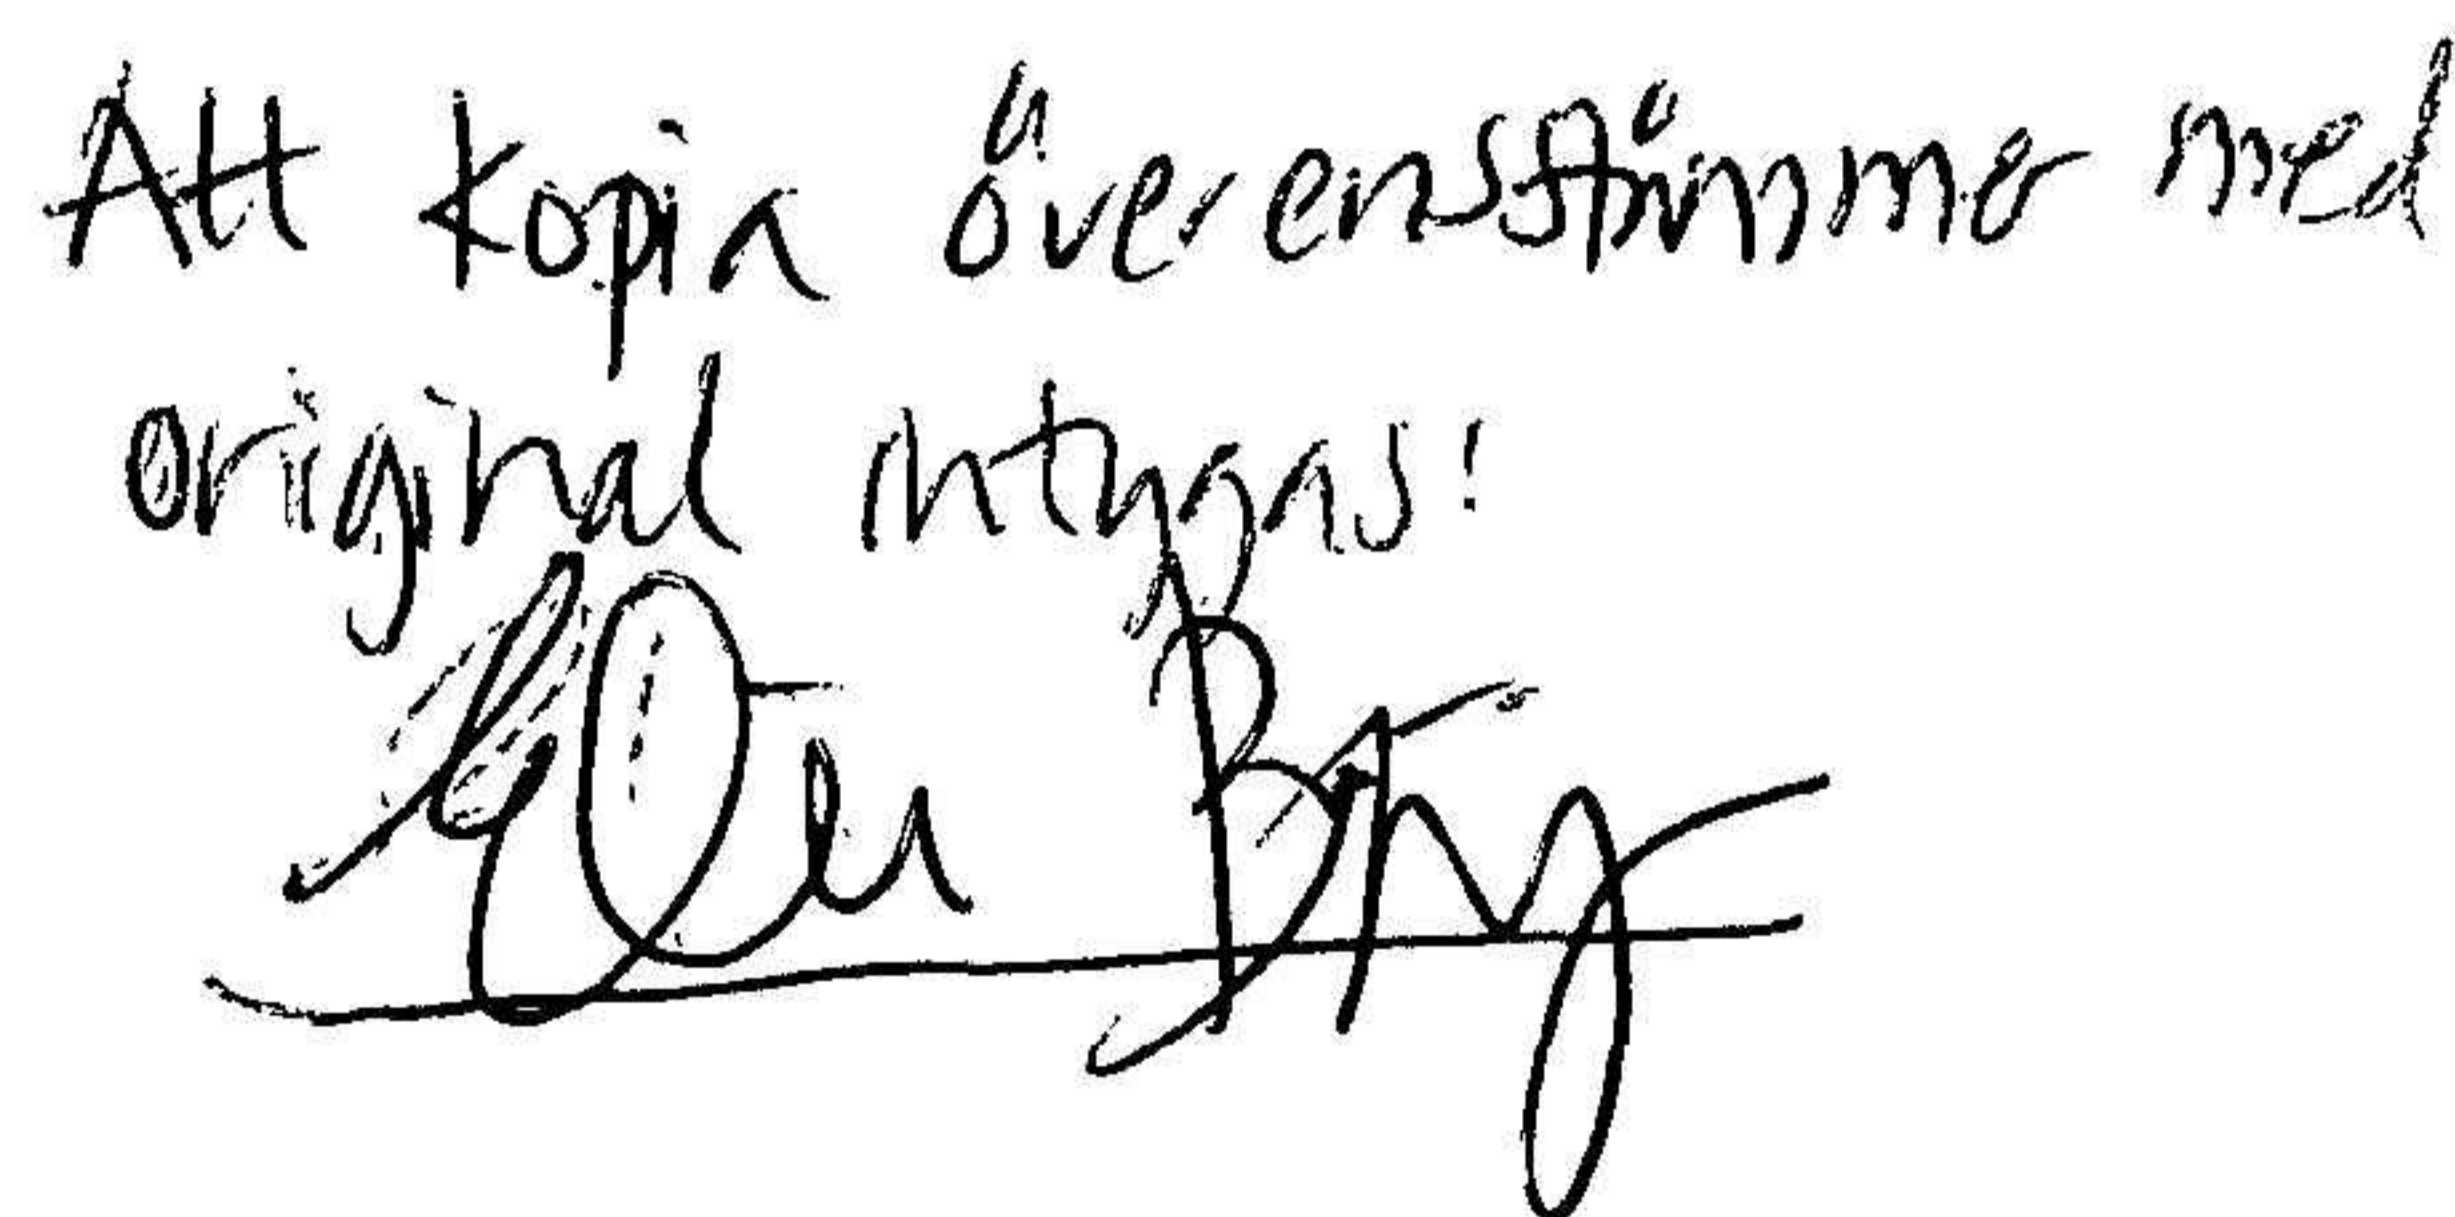 Att kopia överensstämmer med
original intygas!